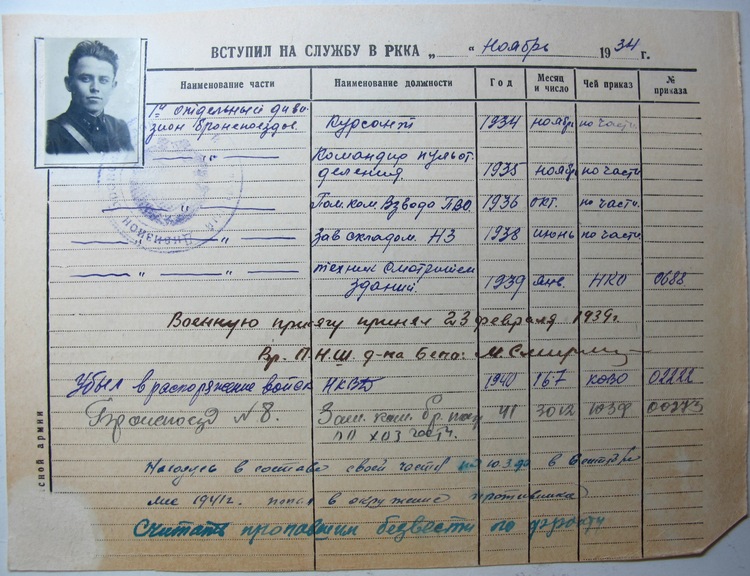 ВСТУПИЛ НА СЛУЖБУ В РККА „ “ ноябрь 1934 г.
Наименование части Наименование должности Год Месяц и число Чей приказ № приказа
1й отдельный диви-
зион бронепоездов Курсант 1934 ноябрь по части
— „ — Командир пульот-
деления 1935 ноябрь по части
— „ — Пом. ком. Взвода ПВО 1936 окт. по части.
— „ — Зав складом НЗ 1938 июнь по части.
— „ — „ — техник смотрителем
зданий. 1939 янв. НКО 0688
Военную присягу принял 23 февраля 1939г.
Вр. П.Н.Ш. д-на Бепо:
Убыл в распоряжение войск НКВД 1940 167 КОВО 02222
Бронепоезд № 8. Зам. ком. бр. 41 ЮЗФ
по хоз части.
Находясь в составе своей части в Сентябре
м-це 1941г. попал в окружение противника
Считать пропавшим безвести
сной армии